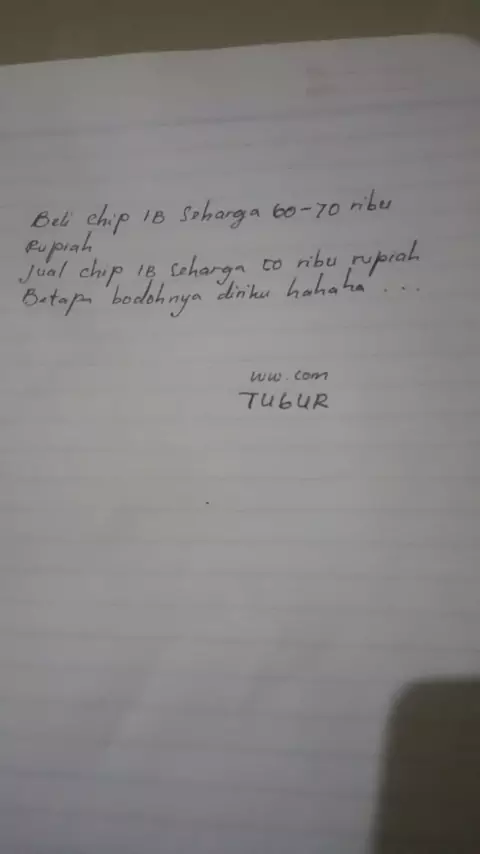 Beli chip 1B seharga 60-70 ribu
Rupiah
Jual chip 1B seharga 50 ribu rupiah
Betapa bodohnya diriku hahaha ...
ww.com
TUBUR